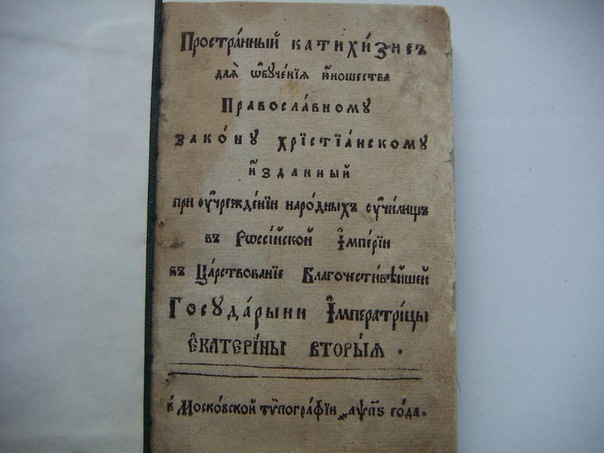 Простра́нный катихи́зисъ
для̀ ѡ҆буче́нїѧ ю҆ношества
Правосла́вному
зако́ну хрїстїа́нскому
и҆зданный
при ᲂу҆чрежде́нїи наро́дныхъ ᲂу҆чи́лищъ
въ Рѡссі́йской И҆мпе́рїи
въ Ца́рствованїе Благочести́вѣйшей
Госуда́рыни И҆мператри́цы
Є҆катери́ны вторы́ѧ .
в Моско́вской тѷпогра́фїи ҂аѱп҃ѕ го́да.